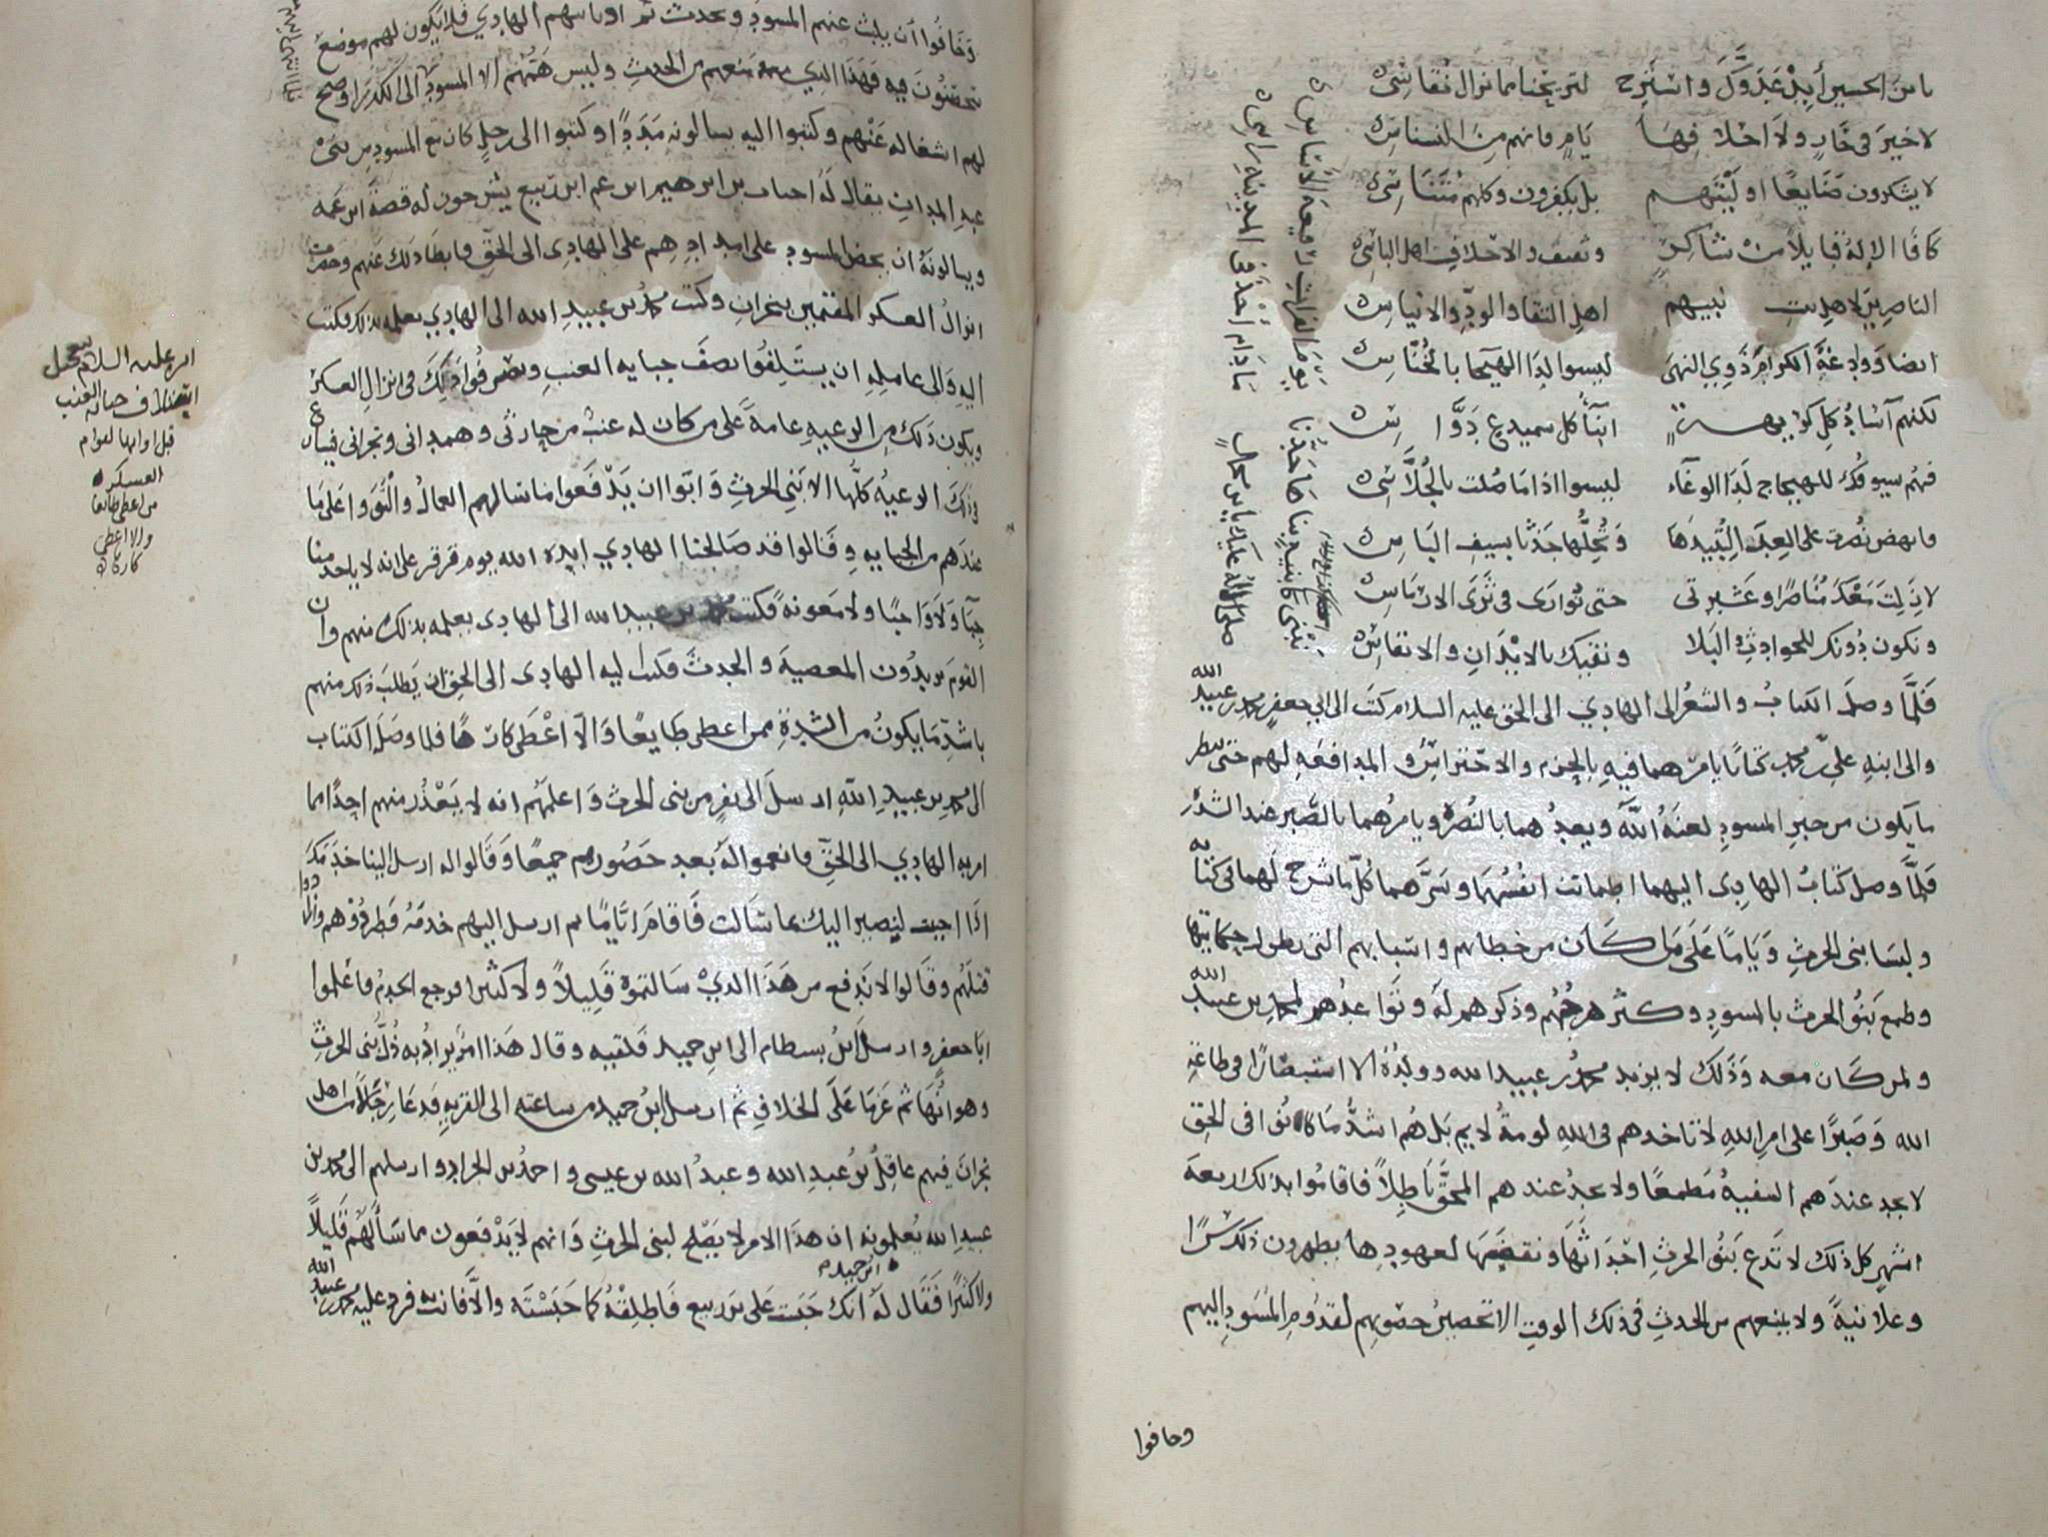 يا بن الحسين أبد عدوك واسترح لتريحنا مما نزال نقاسي
لا خير في خار ولا احلافها يام فانهم من النسناس
لا يشكرون صنايعا اوليتهم بل يكفرون وكلهم متناسي
كافا الإله قبايلا من شاكر وثقيف والاحلاف اهل الباس
الناصرين لاهل بيت نبيهم اهل التقا والود والايناس
ايضا ووادعة الكرام ذوي النهى ليسوا لدا الهيجا بالخناس
لكنهم آساد كل كريهة ابنا كل سميدع
فهم سيوفك للهياج لدا الوغاء ليسوا اذا ما صلت بالجلاس
فانهض نصرت على العدا لتبيدها وتحلها جدثا بسيف الباس
لا زلت معك مناصرا وعشيرتي حتى توارى في ثرى الارماس
ونكون دونك للحوادث البلا ونقيك بالابدان والانفاس
فلما وصل الكتاب والشعر الى الهادي الى الحق عليه السلام كتب الى ابي جعفر محمد بن عبيد الله
والى ابنه علي بن محمد كتابا يامرهما فيه بالحزم والاحتراس والمدافعه لهم حتى ينظر
ما يكون من خبر المسود لعنه الله ويعدهما بالنصره ويامرهما بالصبر عند الشد
فلما وصل كتاب الهادي اليهما اطمانت انفسهما وسرهما كل ما شرح لهما في كتابه
ولبسا بني الحرث وياما على ما كان من خطاهم واسبابهم التي يطول حكايتها
وطمع بنو الحرث بالمسود وكثر هرجهم وذكرهم له وتواعدهم لمحمد بن عبيد الله
ولمن كان معه وذلك لا يزيد محمد بن عبيد الله وولده الا استبصارا في طاعه
الله وصبرا على امر الله لا تاخدهم في الله لومة لايم بل هم اشد ما كانوا في الحق
لا يجد عندهم السفيه مطمعا ولا يجد عندهم المحق باطلا فاقاموا بذلك اربعة
اشهر كل ذلك لا تدع بنو الحرث احداثها ونقضها لعهودها يظهرون ذلك سرا
وعلانية ولا يمنعهم من الحدث في ذلك الوقت الا تحصين حصونهم لقدوم المسود اليهم
وخافوا
وخافوا أن يلبث عنهم المسود ويحدث ثم اوباسهم الهادي فلا يكون لهم موضع
يتحصنون فيه فهذا الذي منعهم من الحدث وليس همتهم الا المسود الى الكدرا وصح
لهم اشغاله عنهم وكتبوا اليه يسالونه مددا وكتبوا الى رجل كان مع المسود من بني
عبد المدان يقال له احمد بن ابرهيم ابن عم ابن ربيع يشرحون له قصة ابن عمه
ويسالونه ان يحض المسود على امدادهم على الهادي الى الحق فابطا ذلك عنهم وحضرت
انزال العسكر المقيمين بنجران وكتب محمد بن عبيد الله الى الهادي يعلمه بذلك فكتب
اليه والى عامله ان يستلفوا نصف جبايه العنب ويصرفوا ذلك في انزال العسكر
ويكون ذلك من الرعيه عامة على من كان له عنب من حارثي وهمداني ونجراني فسارع
في ذلك الرعيه كلها الا بني الحرث وابوا ان يدفعوا ما سالهم العمال والتووا على ما
عندهم من الجبايه وقالوا قد صالحنا الهادي ايده الله يوم قرقر على انه لا ياخد منا
جبا ولا واجبا ولا معونة فكتب محمد بن عبيد الله الى الهادي يعلمه بذلك منهم وان
القوم يريدون المعصية والحدث فكتب اليه الهادي الى الحق ان يطلب ذلك منهم
باشد ما يكون من الشدة فمن اعطى طايعا والا اعطى كارها فلما وصل الكتاب
الى محمد بن عبيد الله ارسل الى نفر من بني الحرث واعلمهم انه لا يعذر منهم احدا مما
امر به الهادي الى الحق فانعموا له بعد حضورهم جميعا وقالوا له ارسل الينا خدمك
اذا احببت ليصير اليك ما سالت فاقام اياما ثم ارسل اليهم خدمه فطردوهم وارادوا
قتلهم وقالوا لا ندفع من هذا الذي سالتموه قليلا ولا كثيرا فرجع الخدم فاعلموا
ابا جعفر وارسل ابن بسطام الى ابن حميد فلقيه وقال هذا امر يراد به ذل بني الحرث
وهوانها ثم عزما على الخلاف ثم ارسل ابن حميد من ساعته الى القريه فدعا رجالا من اهل
نجران فيهم عاقل بن عبد الله وعبد الله بن عيسى واحمد بن الجراد وارسلهم الى محمد بن
عبيد الله يعلمونه ان هذا الامر لا يصلح لبني الحرث وانهم لا يدفعون مما سالهم قليلا
ولا كثيرا فقال له ابن حميد انك حبست علي بن ربيع فاطلقه كما حبسته والا فانت فرد عليه محمد بن عبيد الله
امره عليه السلام
قبل اوانها لقوام
العسكر
من اعطى طايعا
والا اعطى
كارها